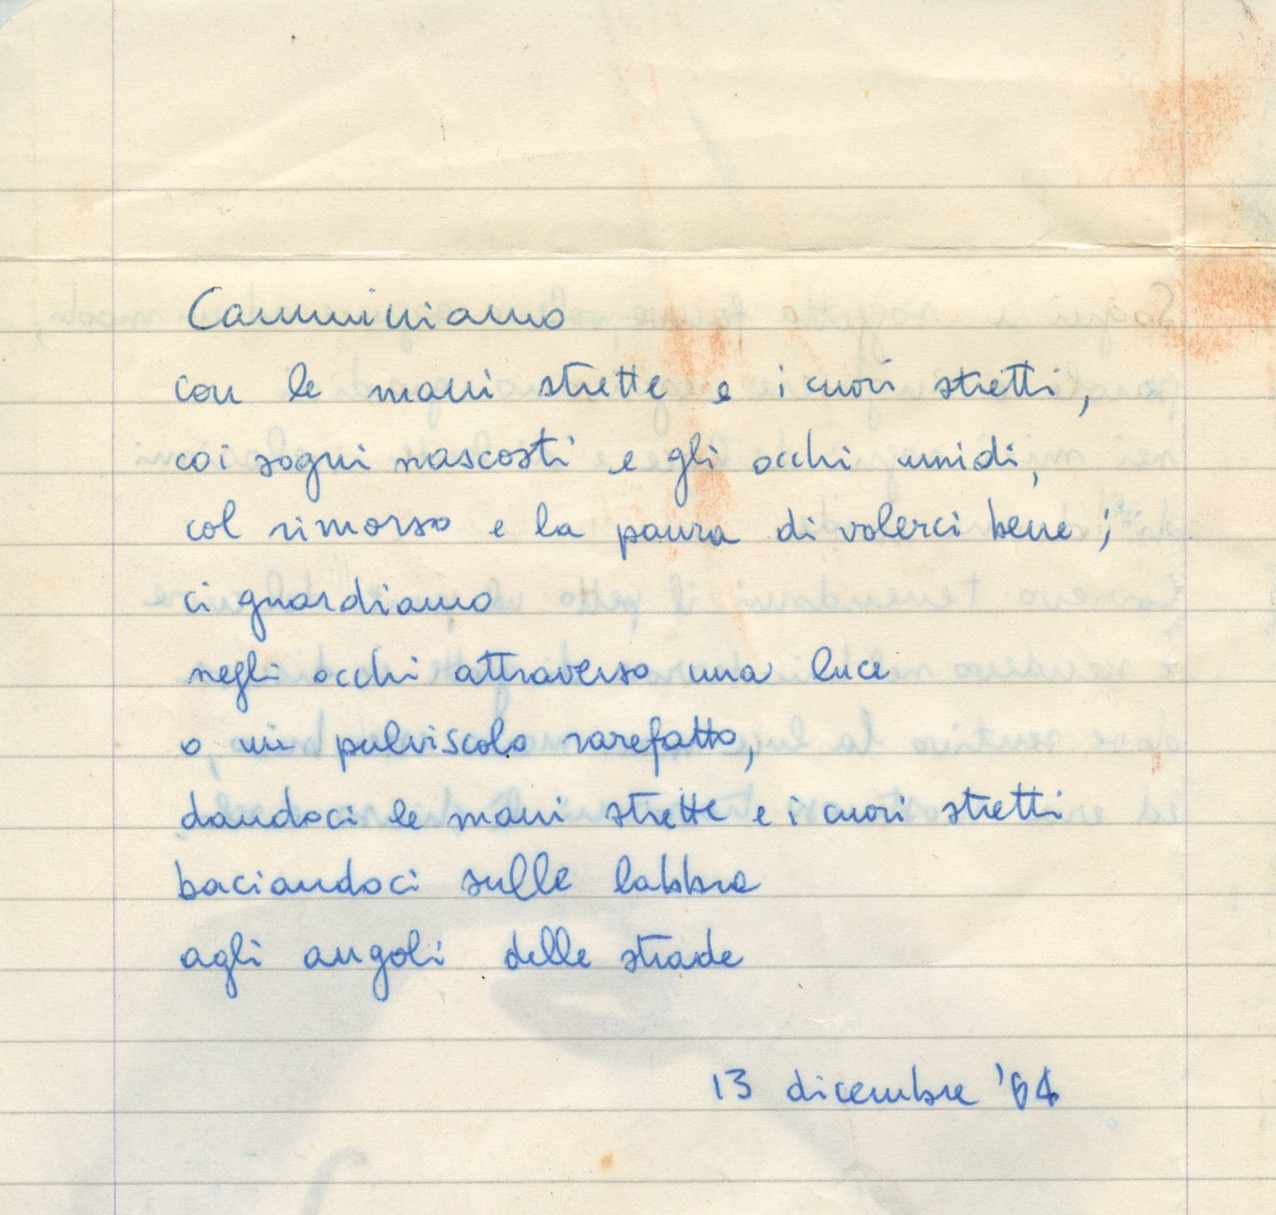 Camminiamo
con le mani strette e i cuori stretti,
coi sogni nascosti e gli occhi umidi,
col rimorso e la paura di volerci bene;
ci guardiamo
negli occhi attraverso una luce
o un pulviscolo rarefatto,
dandoci le mani strette e i cuori stretti
baciandoci sulle labbra
agli angoli delle strade
13 dicembre '64